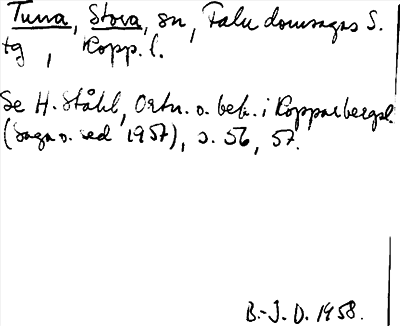 Tuna, Stora, sn, Falu domsagas S.
tg, Kopp. l.
Se H. Ståhl, Ortn. o. beb. i Kopparbergsl.
(Saga o. sed 1957), s. 56, 57.
B.-J. D. 1958.